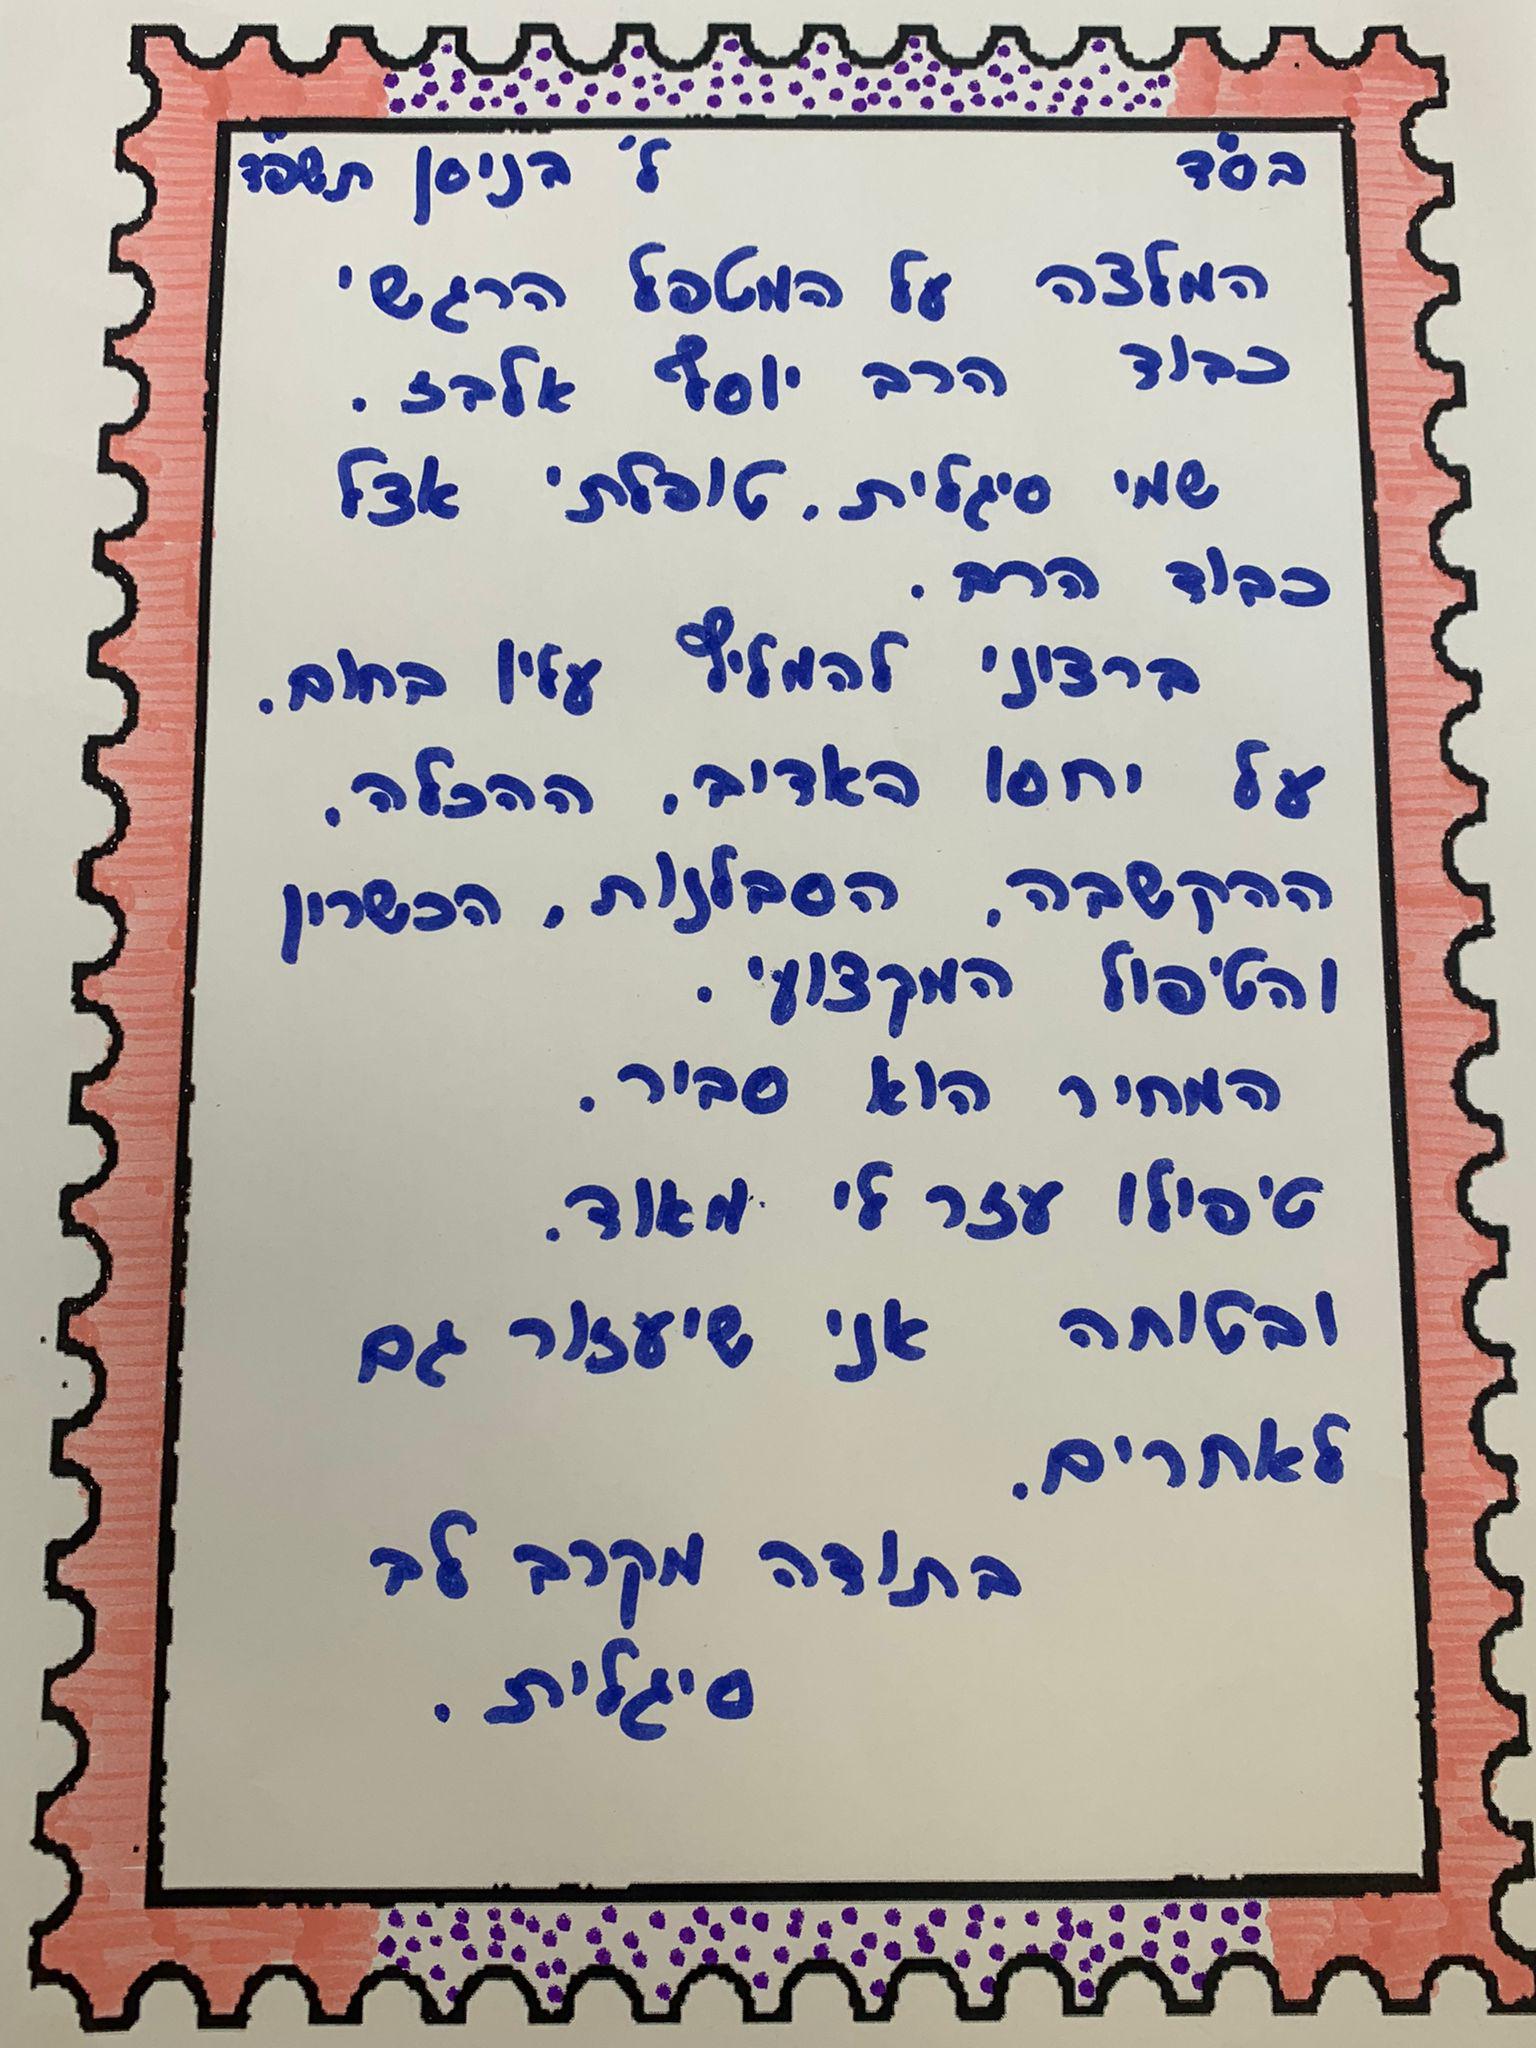 בס"ד ל' בניסן תשפ"ד
המלצה על המטפל הרגשי
כבוד הרב יוסף אלבז.
שמי סיגלית. טופלתי אצל
כבוד הרב.
ברצוני להמליץ עליו בחום.
על יחסו האדיב. ההכלה.
ההקשבה. הסבלנות. הכשרון
והטיפול המקצועי.
המחיר הוא סביר.
טיפולו עזר לי מאוד.
ובטוחה אני שיעזור גם
לאחרים.
בתודה מקרב לב
סיגלית.